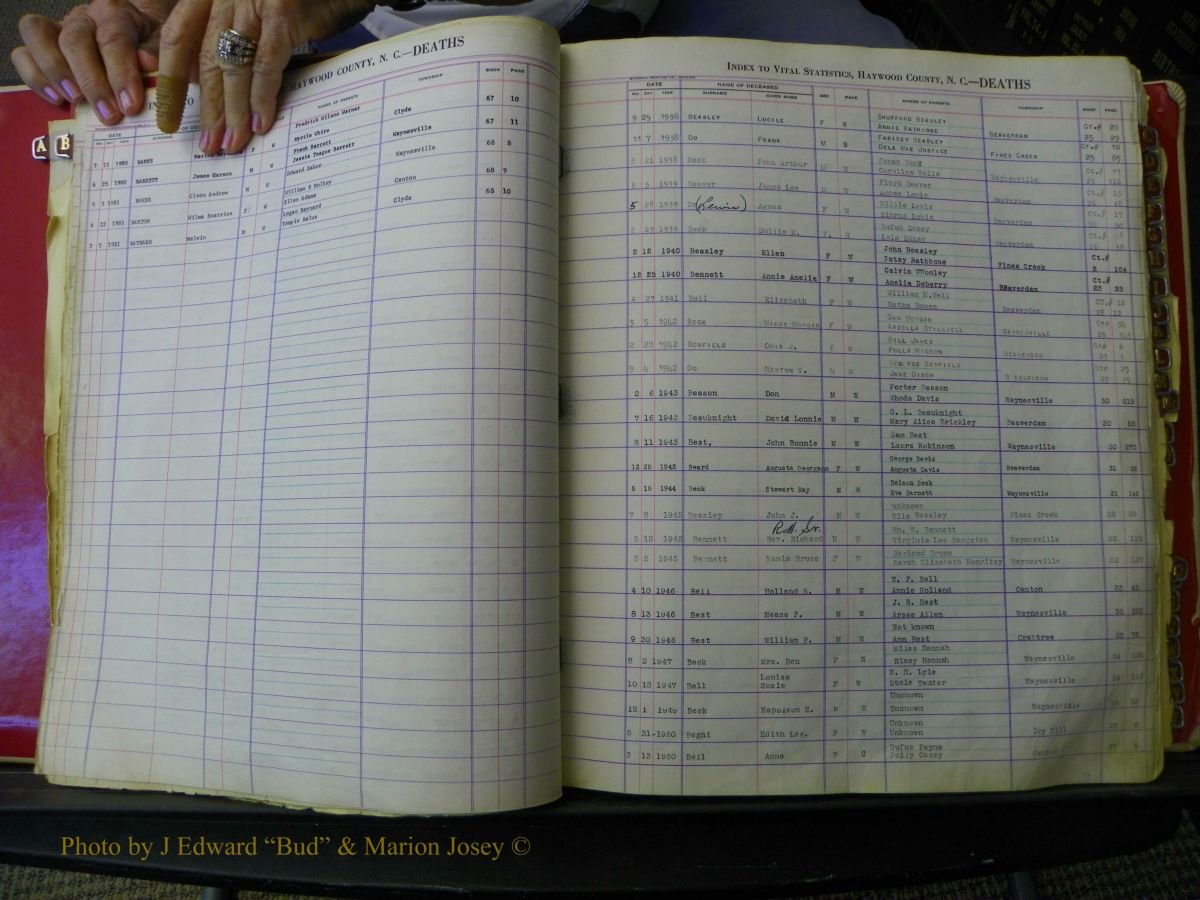 A B
HAYWOOD COUNTY, N. C.—DEATHS
DATE NAMES OF PARENTS TOWNSHIP BOOK PAGE
Fredrick Wilson Warner Clyde 67 10
7 11 1980 BANKS F W Myrtle White
Frank Barrett Waynesville 67 11
6 25 1980 BARRETT James Carson M W Jessie Teague Barrett
Edward Baker Waynesville 68 8
3 1981 BAKER Cleon Andrew M W
William S Canton 68 9
22 1981 BARTON Wilma Beatrice F W Ellen Adams
Logan Haynard Clyde 68 10
3 3 1981 HAYNARD Melvin M W Tempie
INDEX TO VITAL STATISTICS, HAYWOOD COUNTY, N. C.—DEATHS
DATE NAME OF DECEASED
MO. DAY YEAR SURNAME GIVEN NAME SEX RACE NAMES OF PARENTS TOWNSHIP BOOK PAGE
SHUFFORD BEASLEY Ct.# 29
9 25 1938 BEASLEY LUCILE F W ANNIE RATHBONE BEAVERDAM 25 29
FARIDEY BEASLEY Ct.# 10
11 7 1938 Do FRANK M W DELA MAE JUSTICE FINES CREEK 25 85
James Beck Ct.# 97
21 1938 Beck John Arthur M W Caroline Wells Waynesville
Floyd Beaver Ct.# 13
5 5 1939 Beaver James Lee M W Agnes Lewis Beaverdam
Willie Lewis Ct.# 17
5 28 1939 Do (Lewis) Agnes F W Lewis Beaverdam
Rufus Edney Ct.#
2 23 1939 Beck Dollie E. F W Lula Edney Beaverdam
John Beasley Ct.#
2 12 1940 Beasley Ellen F W Patsy Rathbone Fines Creek 2 104
Calvin WWooley Ct.#
12 25 1940 Bennett Annie Amelia F W Amelia Deberry Beaverdam 23 23
William M. Bell CT.# 12
4 27 1941 Bell Elizabeth F W Gatha Bowen Beaverdam 28 12
DAN MORGAN CT# 54
3 5 1942 BECK MANDY MORGAN F W WAYNESVILLE 29
BILL JAMES CT# 6
2 28 1942 BENFIELD J. F W POLLY HIGDON BEAVERDAM 29 6
GEORGE BENFIELD CT# 25
9 4 1942 Do NEWTON V. M W JANE DIXON BEAVERDAM 29 55
Porter Beason
2 6 1943 Beason Don M W Rhoda Davis Waynesville 30 219
G. L. Beauknight
7 16 1943 Beauknight David Lonnie M W Mary Alice Brickley Beaverdam 30 56
Sam Best
8 11 1943 Best, John Bonnie M W Laura Robinson Waynesville 30 270
George Davis
12 25 1943 Beard Augusta Georgann F W Augusta Davis Beaverdam 31 15
Nelson Beck
5 15 1944 Beck Stewart Ray M W Eva Barnett Waynesville 31 143
unknown
7 8 1945 Beasley John J. M W Ella Beasley Fines Creek 32 55
R.H. Sr. Wm. N. Bennett
5 12 1945 Bennett Rev. Richard M W Virginia Lee Sangsten Waynesville 32 110
Garland Bruce
6 5 1945 Bennett Mamie Bruce F W Sarah Elizabeth Heavitsy Waynesville 32
W. F. Bell
4 10 1946 Bell Holland S. M W Annie Holland Canton 33 43
J. R. Best
8 13 1946 Best Mease P. M W Arsee Allen Waynesville 33
Not known
9 30 1946 Best William P. M W Ann Best Crabtree 33 76
Miles Hannah
8 2 1947 Beck Mrs. Ben F W Rixey Hannah Waynesville 34
Louise W. H. Lyle
10 18 1947 Bell Susie F W Susie Tedder Waynesville 34
Unknown
12 1 1949 Beck Napoleon E. M W Unknown Waynesville
Unknown
5 31-1950 Begni Edith Lee. F W Unknown Ivy Hill
Rufus Payne
3 13 1950 Bell Anna F C Polly Casey Canton
Photo by J Edward “Bud” & Marion Josey ©